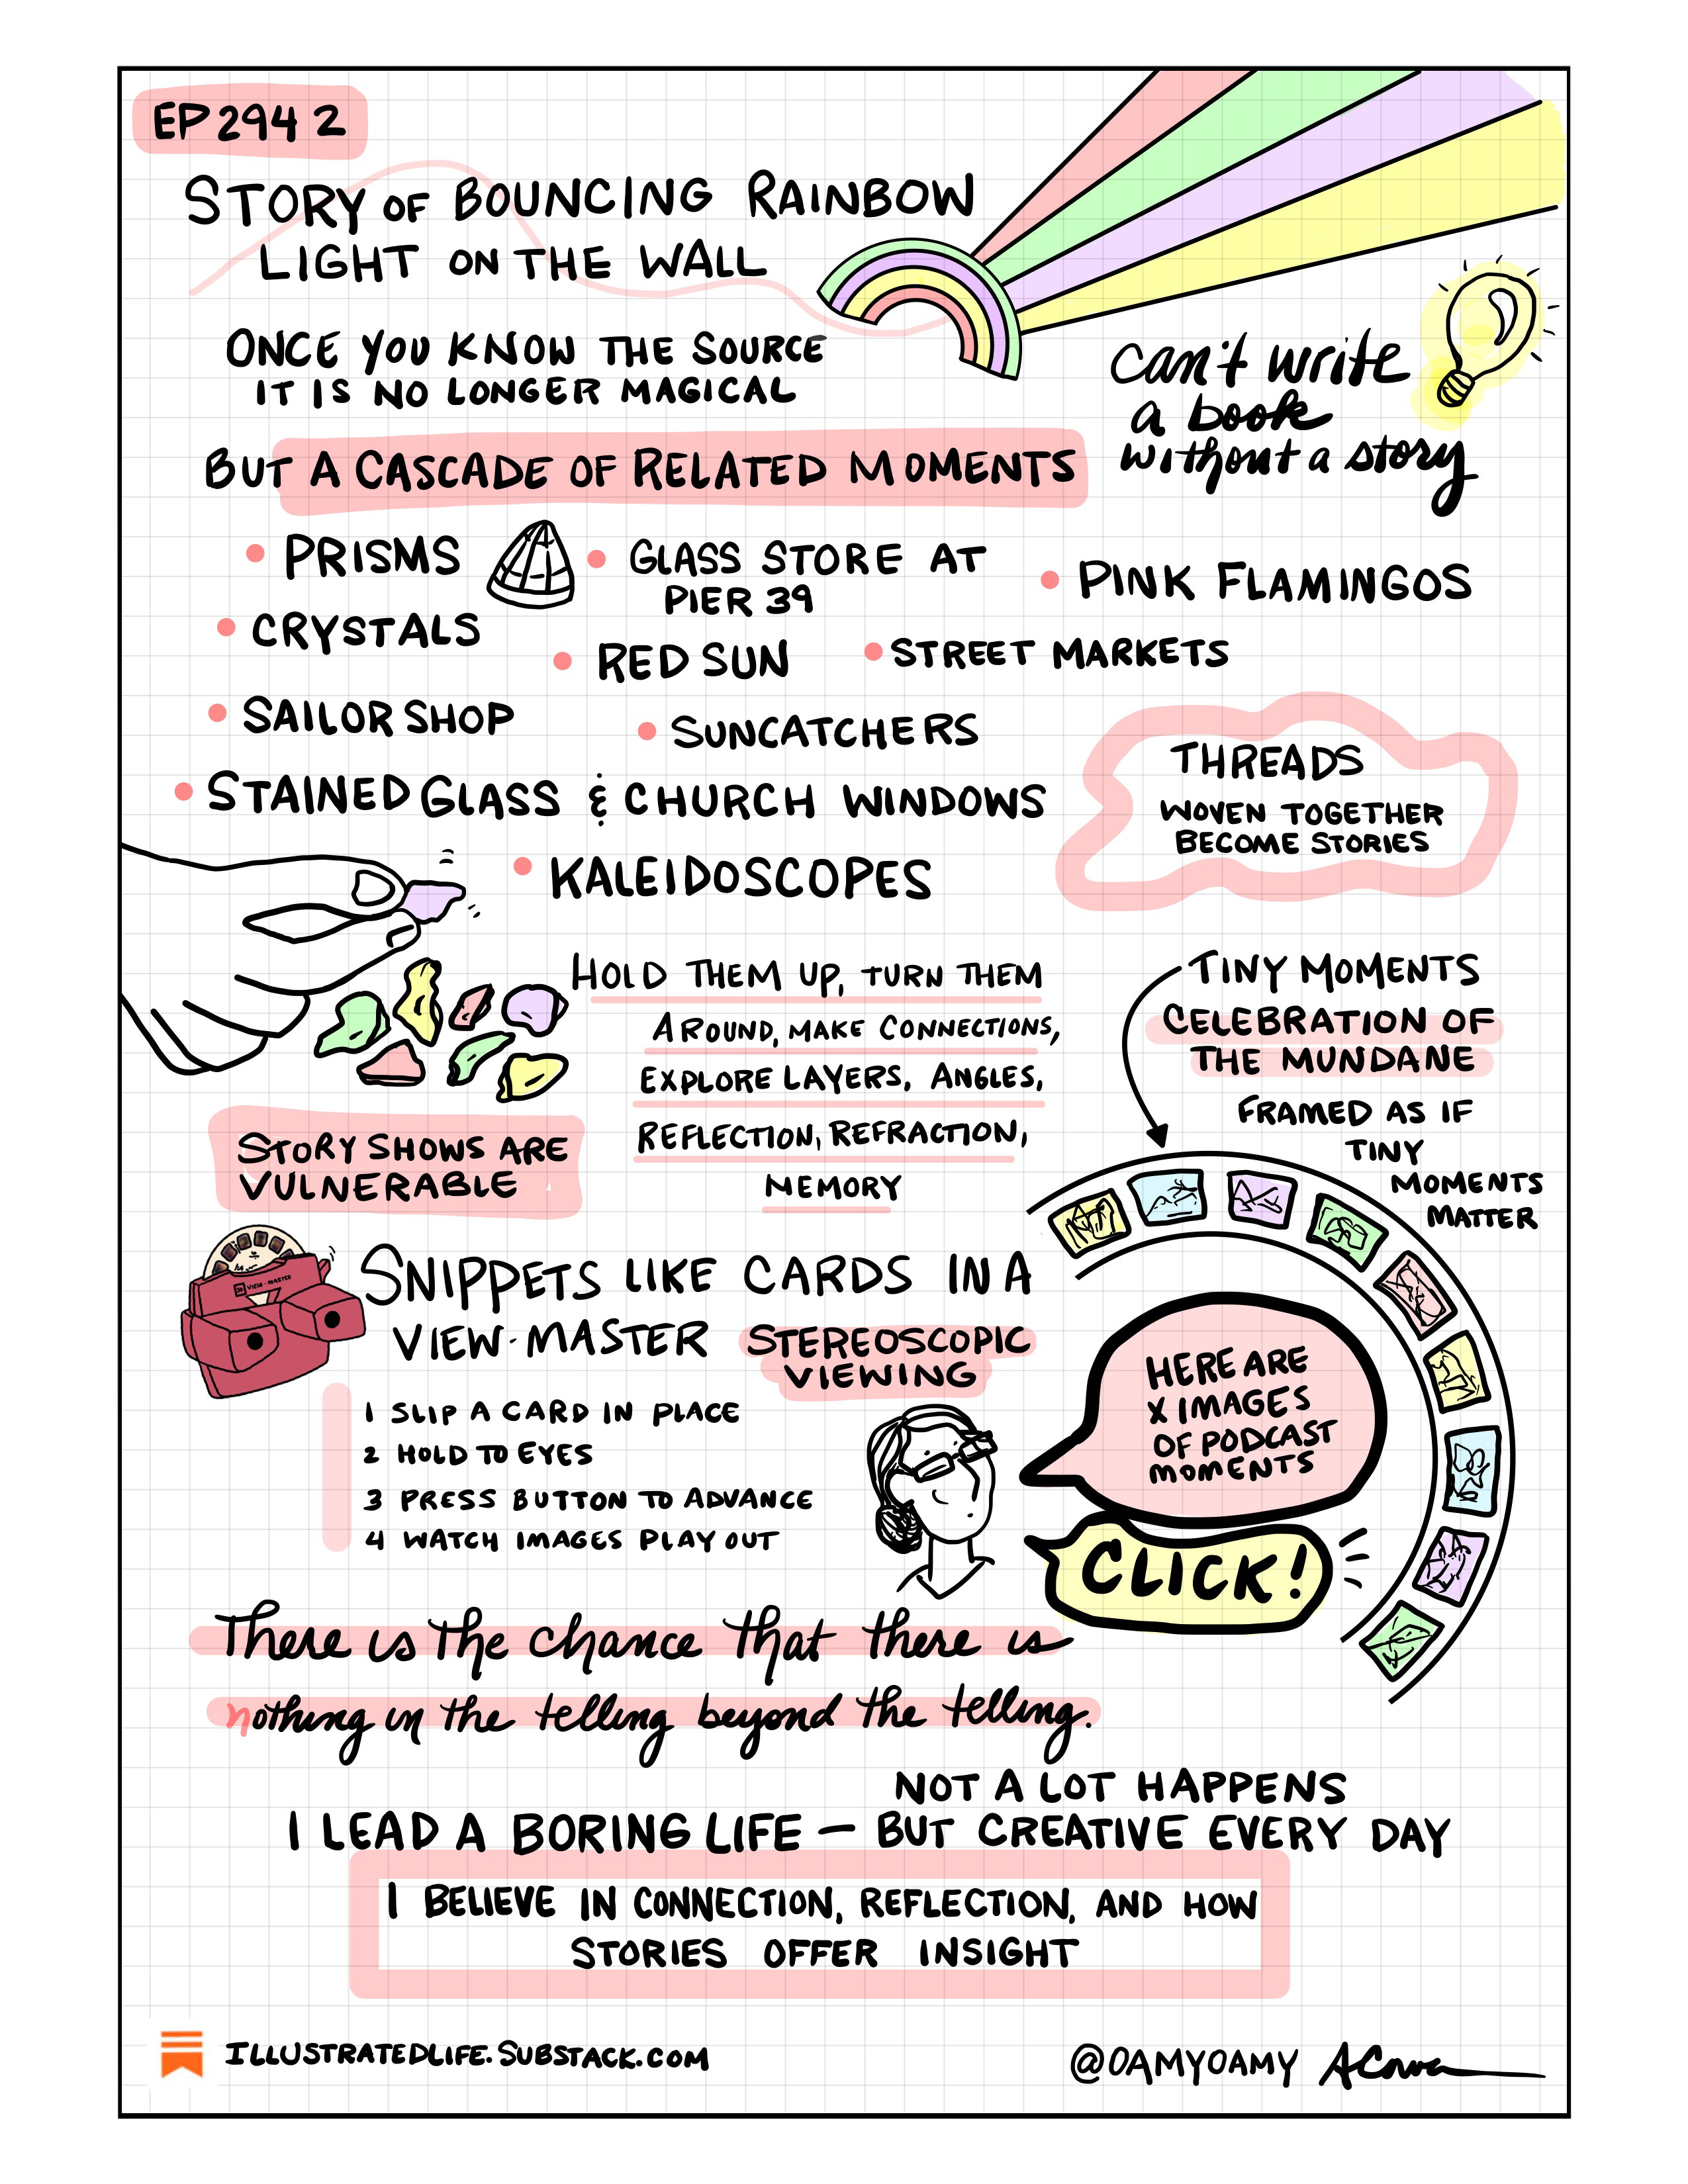 EP 294 2
STORY OF BOUNCING RAINBOW
LIGHT ON THE WALL
ONCE YOU KNOW THE SOURCE
IT IS NO LONGER MAGICAL
can't write
a book
without a story
BUT A CASCADE OF RELATED MOMENTS
• PRISMS
• GLASS STORE AT
PIER 39
• PINK FLAMINGOS
• CRYSTALS
• RED SUN
• STREET MARKETS
• SAILOR SHOP
• SUNCATCHERS
• STAINED GLASS & CHURCH WINDOWS
• KALEIDOSCOPES
THREADS
WOVEN TOGETHER
BECOME STORIES
HOLD THEM UP, TURN THEM
AROUND, MAKE CONNECTIONS,
EXPLORE LAYERS, ANGLES,
REFLECTION, REFRACTION,
MEMORY
TINY MOMENTS
CELEBRATION OF
THE MUNDANE
FRAMED AS IF
TINY
MOMENTS
MATTER
STORY SHOWS ARE
VULNERABLE
VIEW-MASTER
SNIPPETS LIKE CARDS IN A
VIEW-MASTER STEREOSCOPIC
VIEWING
1 SLIP A CARD IN PLACE
2 HOLD TO EYES
3 PRESS BUTTON TO ADVANCE
4 WATCH IMAGES PLAY OUT
HERE ARE
X IMAGES
OF PODCAST
MOMENTS
CLICK!
There is the chance that there is
nothing in the telling beyond the telling.
NOT A LOT HAPPENS
I LEAD A BORING LIFE — BUT CREATIVE EVERY DAY
I BELIEVE IN CONNECTION, REFLECTION, AND HOW
STORIES OFFER INSIGHT
ILLUSTRATEDLIFE.SUBSTACK.COM
@OAMYOAMY